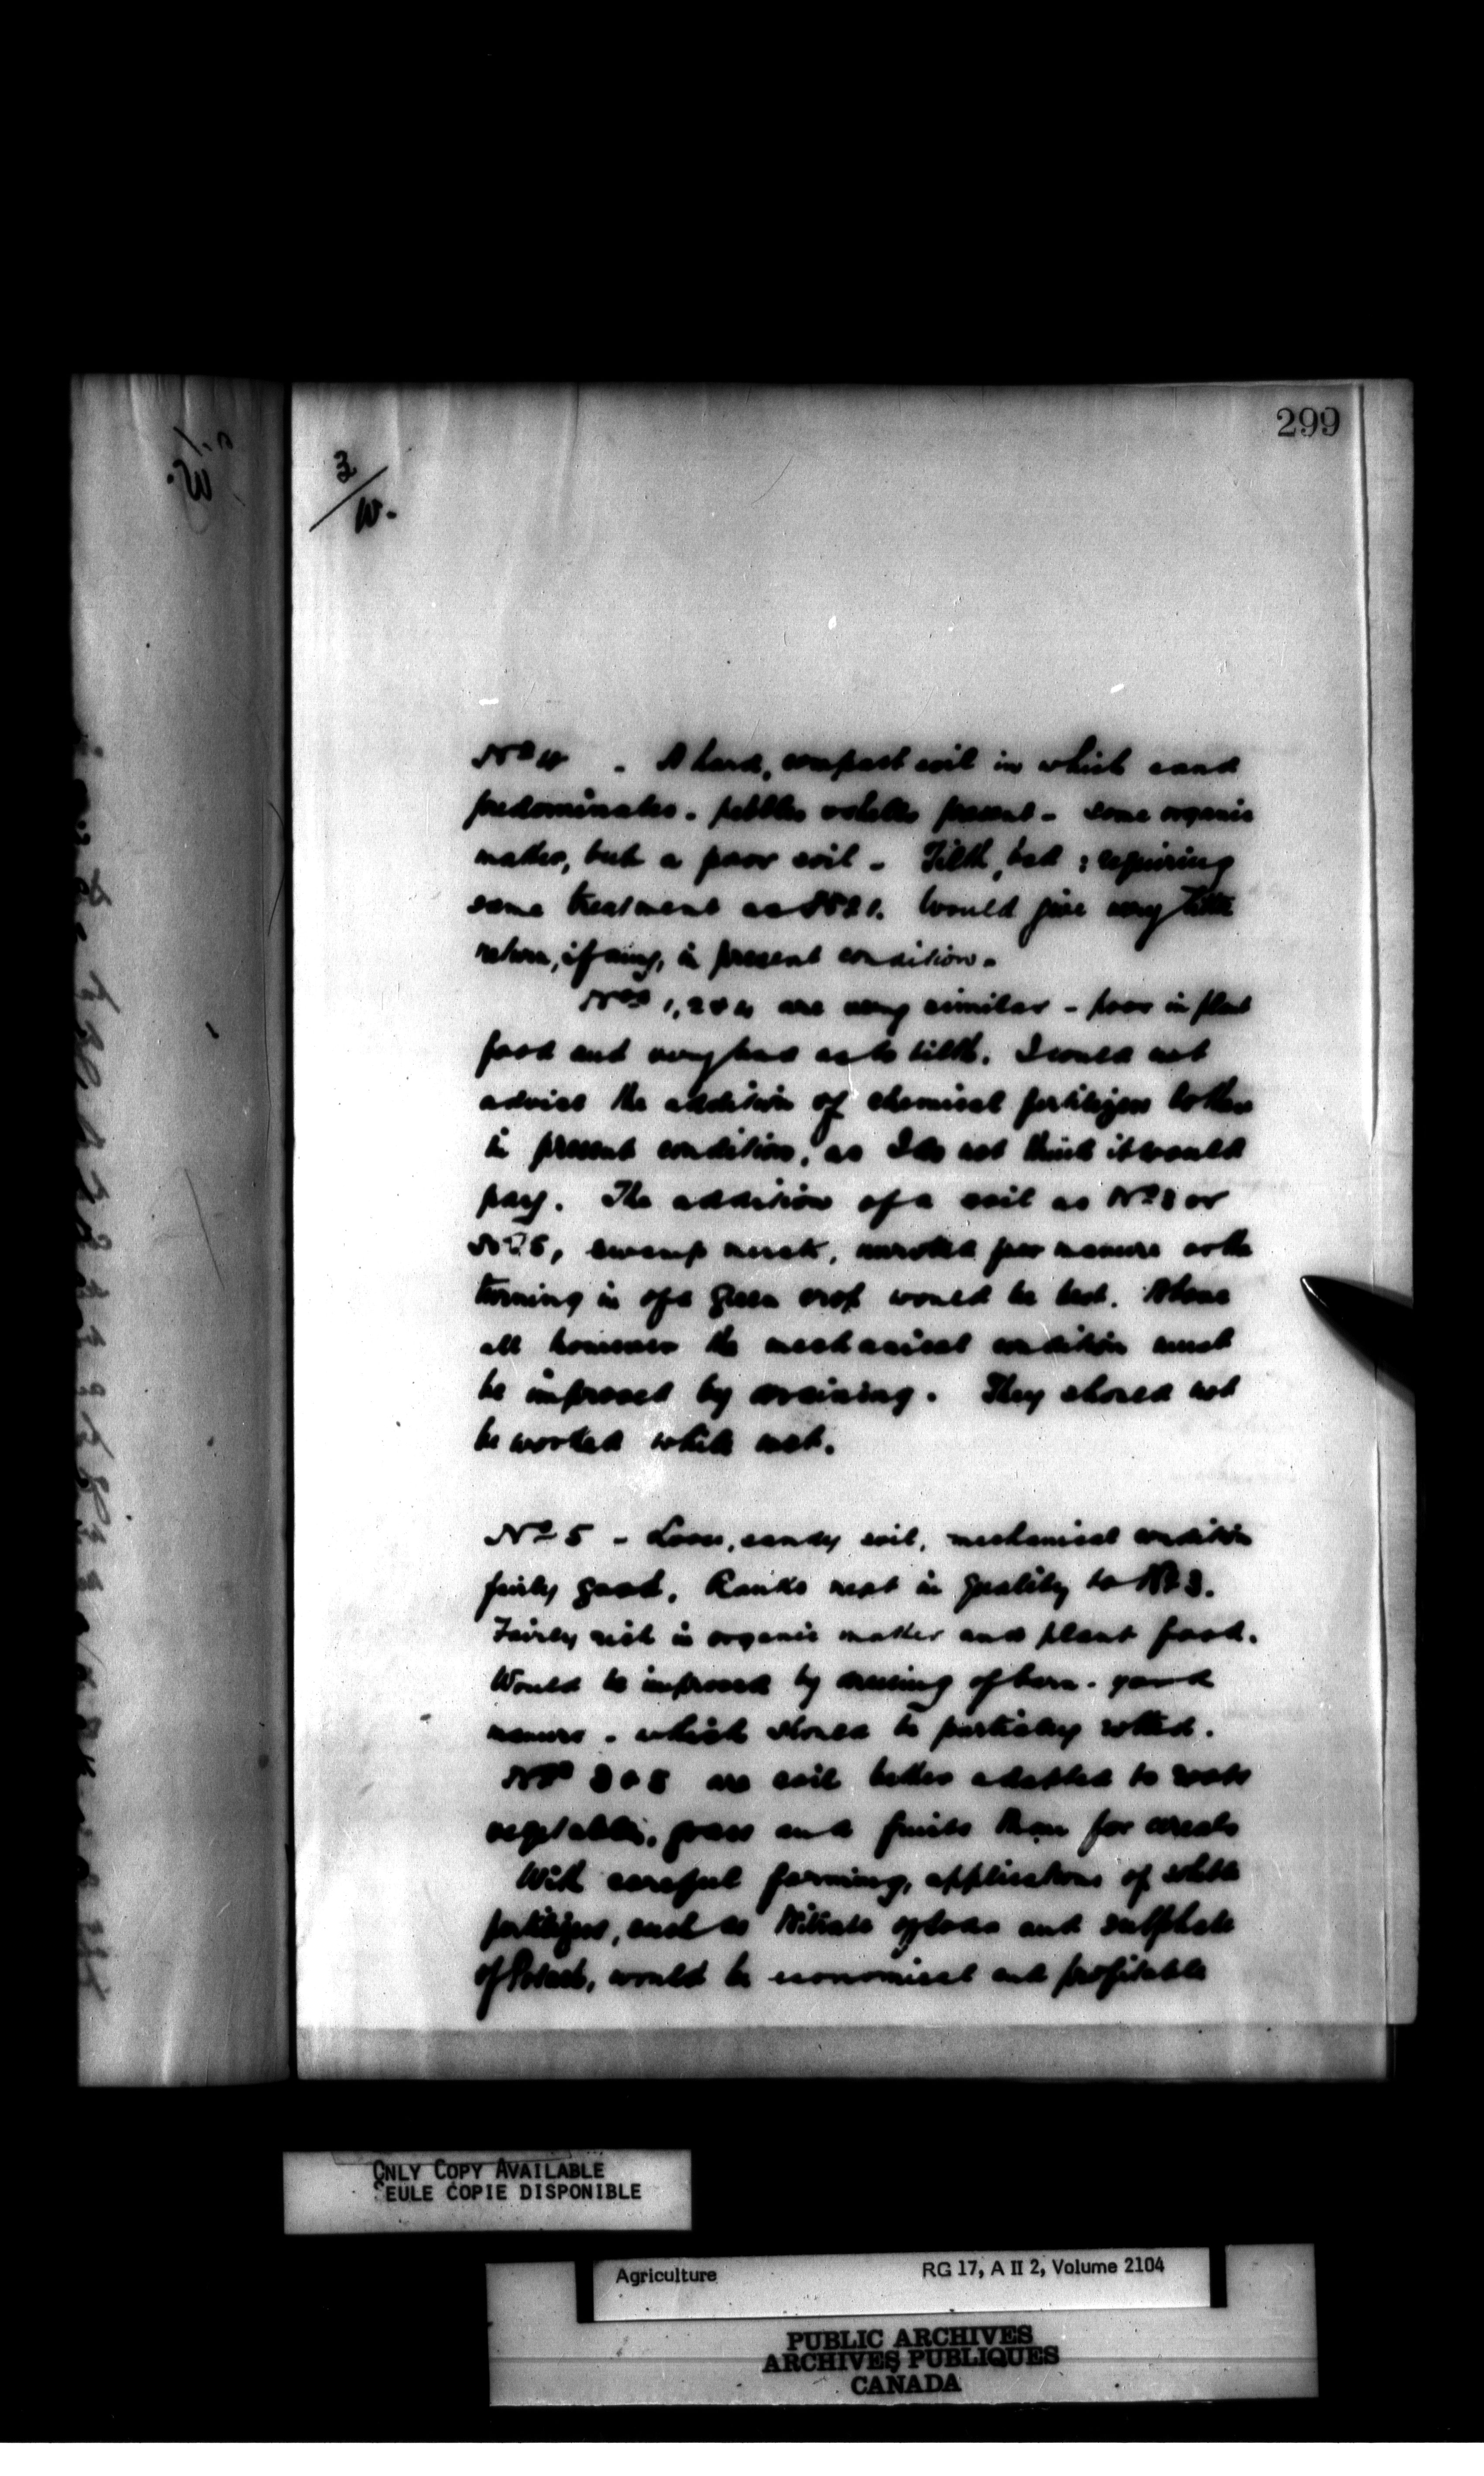 299
3/W.
No 4 - A hard, compact soil in which sand
predominates. pebbles present - Some organic
matter, but a poor soil - Tilth, bad; requiring
same treatment as No 1. Would give very little
return, if any, in present condition.
Nos 1, 2 & 4 are very similar - poor in plant
food and very bad as to tilth. I would not
advise the addition of chemical fertilizers to them
in present condition, as I do not think it would
pay. The addition of a soil as No 3 or
No 5, swamp muck, manure or the
turning in of a green crop would be best. Above
all however the mechanical condition must
be improved by draining. They should not
be worked while wet.
No 5 - Loose, sandy soil, mechanical condition
fairly good. Ranks next in quality to No 3.
Fairly rich in organic matter and plant food.
Would be improved by dressing of barn-yard
manure - which should be partially rotted.
Nos 3 & 5 are soil better adapted to roots
vegetables, grass and fruits than for cereals
With careful farming, applications of
fertilizers, such as Nitrate of Soda and Sulphate
of Potash, would be economical and profitable
ONLY COPY AVAILABLE
SEULE COPIE DISPONIBLE
Agriculture RG 17, A II 2, Volume 2104
PUBLIC ARCHIVES
ARCHIVES PUBLIQUES
CANADA